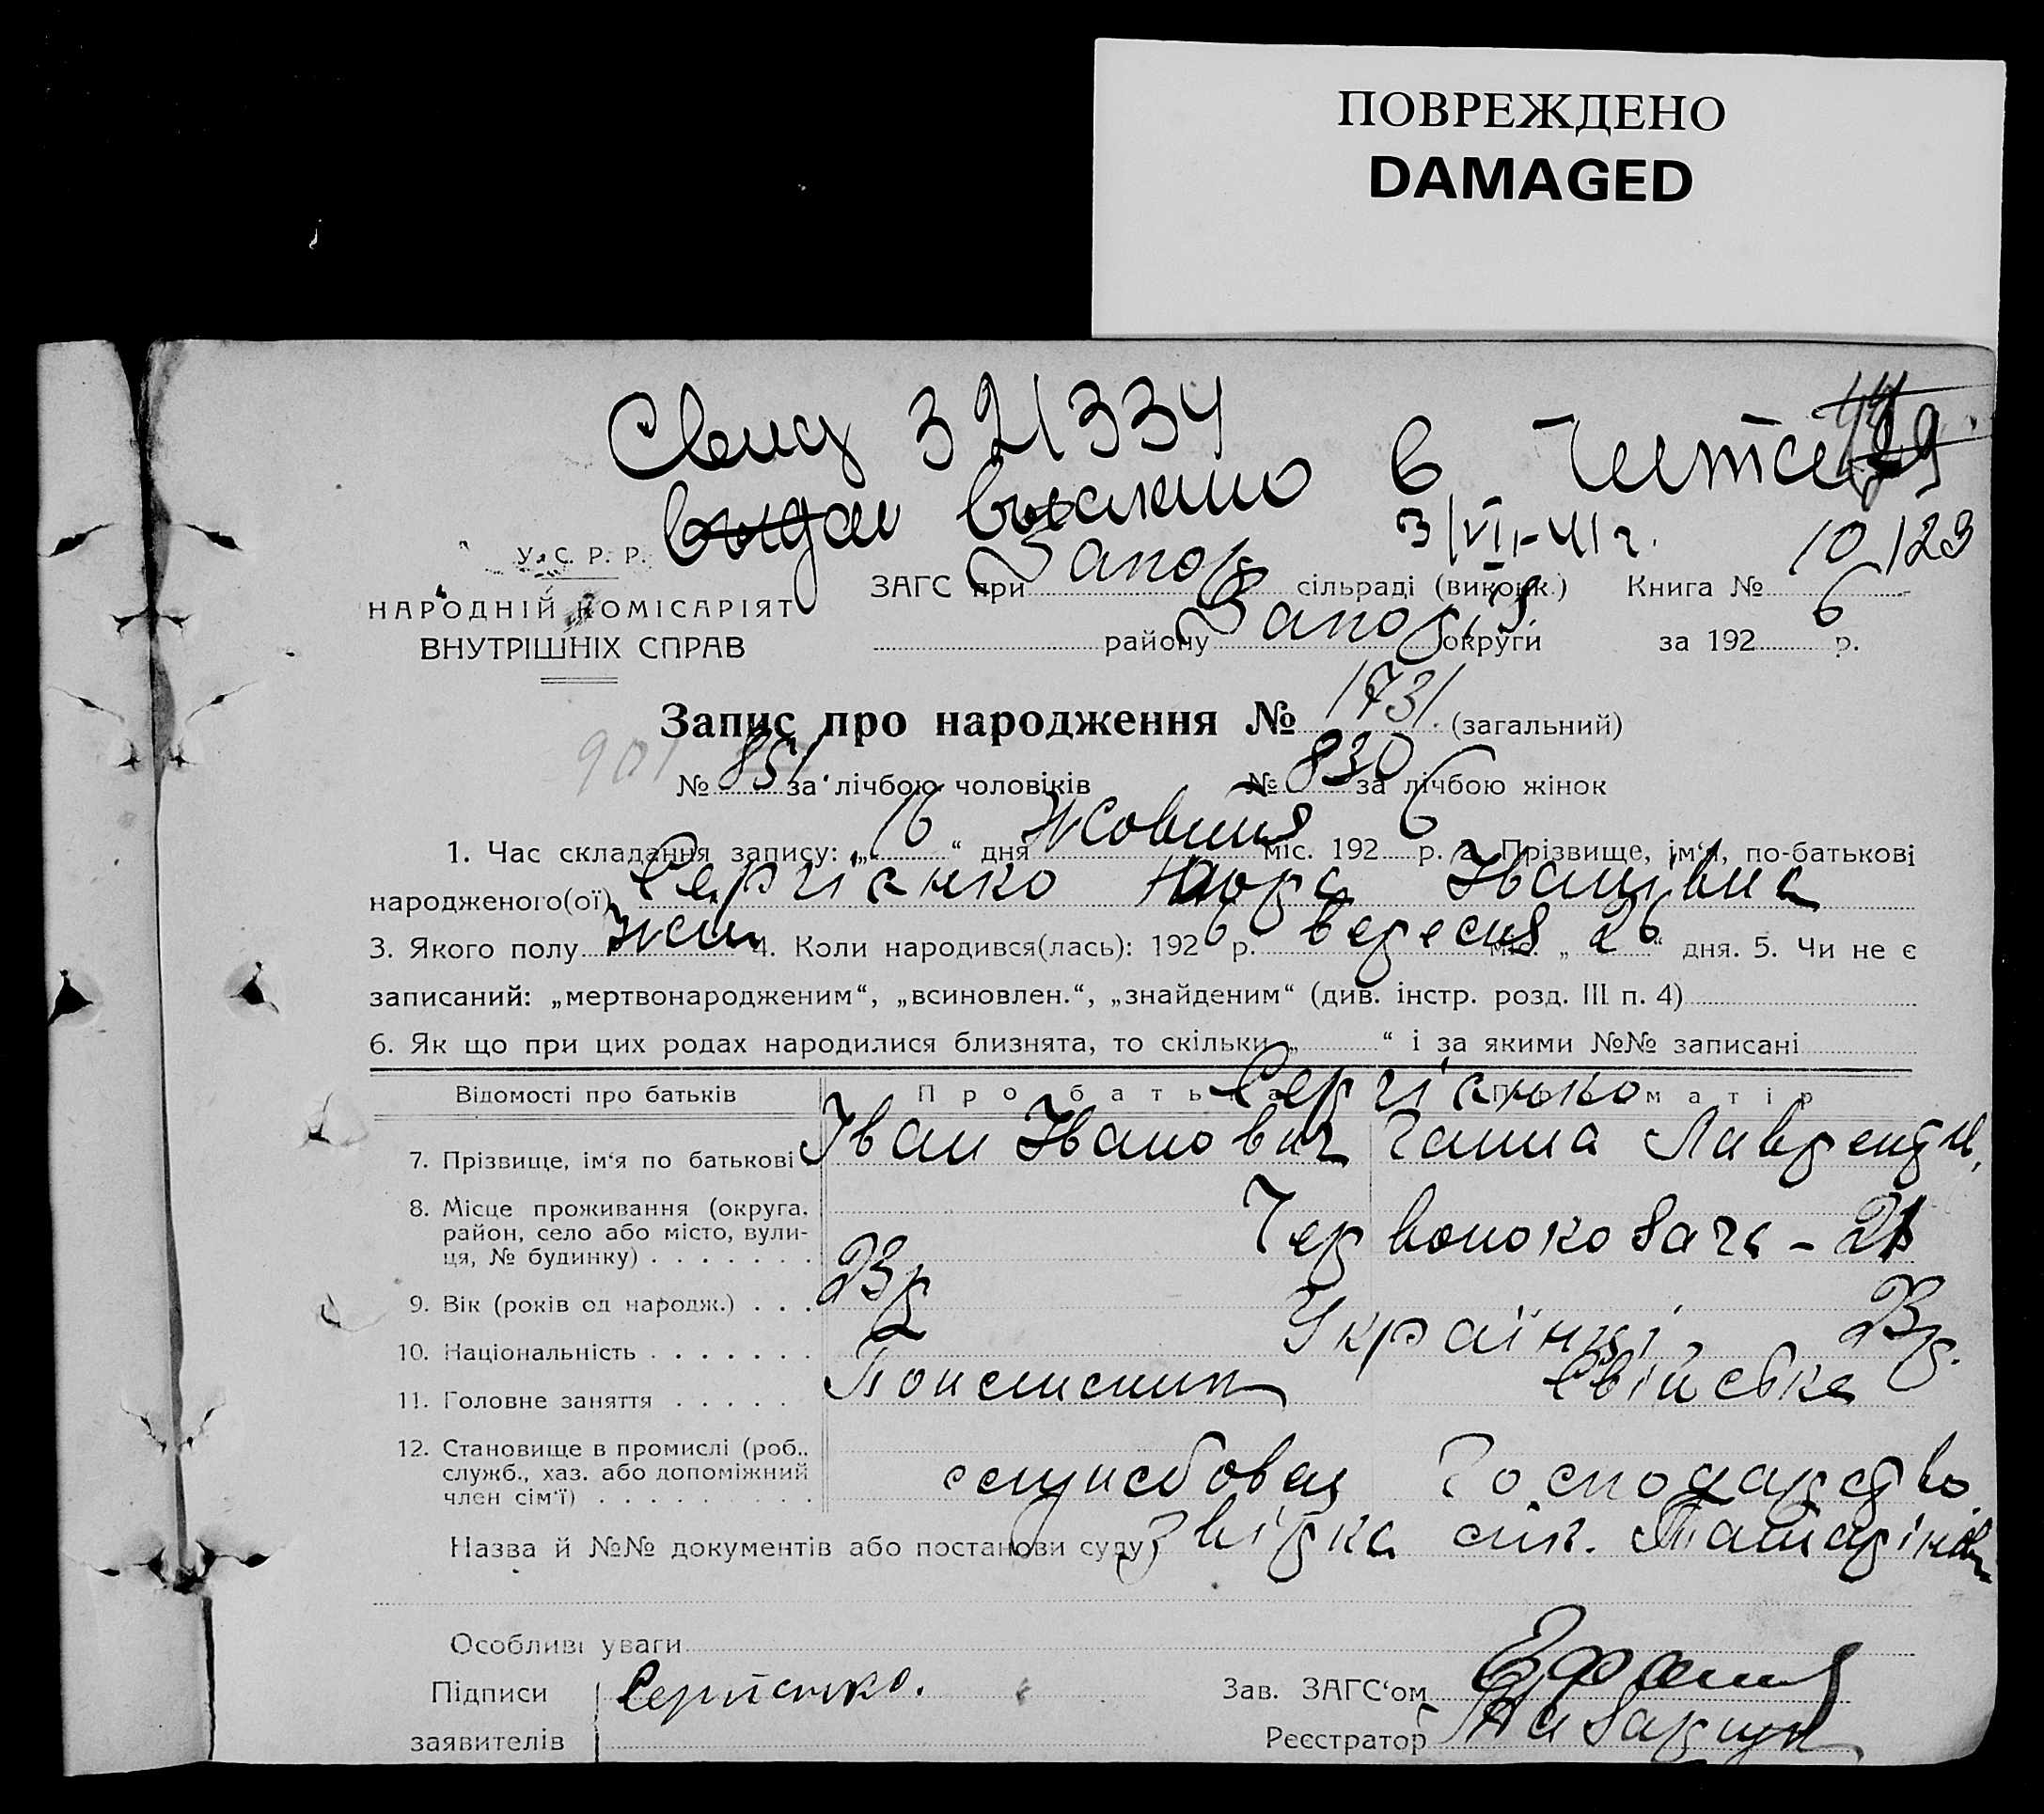 ПОВРЕЖДЕНО
DAMAGED
Свид 321334 в Читей
выдан выслано 3/VI-41 г.
10/123
У. С. Р. Р.
НАРОДНІЙ КОМІСАРІЯТ
ВНУТРІШНІХ СПРАВ
ЗАГС при Запор сільраді (виконк.) Книга №
району Запоріз округи за 1926 р.
Запис про народження № 1731 (загальний)
901 № 851 за лічбою чоловіків № 830 за лічбою жінок
1. Час складання запису: „16“ дня Жовтня міс. 1926 р. 2. Прізвище, ім‘я, по-батькові
народженого(ої) Сергієнко Нора Іванівна
3. Якого полу жін 4. Коли народився(лась): 1926 р. вересня міс. „26“ дня. 5. Чи не є
записаний: „мертвонародженим“, „всиновлен.“, „знайденим“ (див. інстр. розд. III п. 4)
6. Як що при цих родах народилися близнята, то скільки „ “ і за якими №№ записані
Відомості про батьків Про батька Про матір
Сергієнко
7. Прізвище, ім‘я по батькові Іван Іванович Ганна Лаврентн.
8. Місце проживання (округа,
район, село або місто, вули-
ця, № будинку) Червонокозача - 21
9. Вік (років од народж.) 23 р. 23 р.
10. Національність Українці
11. Головне заняття Свійське
12. Становище в промислі (роб.,
служб., хаз. або допоміжний
член сім‘ї) службовец Господарство.
Назва й №№ документів або постанови суду Звірка
Особливі уваги
Підписи Сергієнко. Зав. ЗАГС‘ом
заявителів Реєстратор